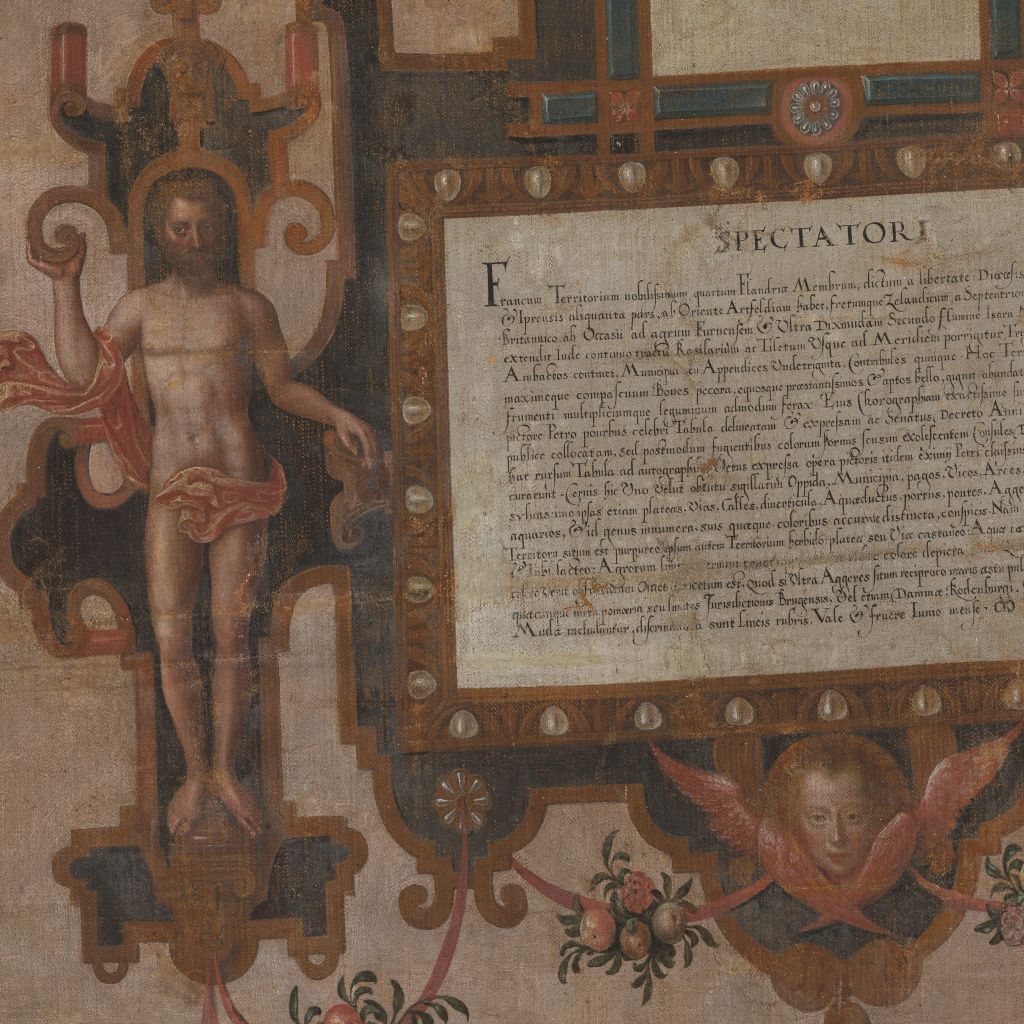 SPECTATORI
Francum Territorium nobilissimum quartum Flandriæ Membrum, dictum a libertate: Diœcesis
& Iprensis aliquanta pars, ab Oriente Assfeldiam habet, fretumque Zelandicum, a Septentrio
Britannico, ab Occasu ad agrum Furnensem & Vltra Dixmudam Secundo flumine Isara
extendit Inde continuo tractu Roslarium ac Tiletum Vsque ad Meridiem porrigitur
Ambactos continet, Municipia seu Appendices Vndetriginta, Contribulos quinque Hoc Ter
maximeque compascuum Boues pecora, equosque præstantissimos & aptos bello, gignit abundat
frumenti multipliciumque leguminum admodum ferax. Eius Chorographiam exactissime
pictore Petro pourbus celebri Tabula delineatam & expressam ac Senatus, Decreto
publice collocatam, sed postmodum fugientibus colorum formis sensim exolescentem Consules
hac rursum Tabula ad autographum Vetus expressa opera pictoris itidem eximij Petri claissins
curarunt Cernis hic Vno velut obtutu sigillatim Oppida, Municipia, pagos, Vicos, Arces
syluas imo ipsas etiam plateas, Vias, Calles, diuerticula, Aquæductus, portus, pontes, Agge
aquarios, & id genus innumera, suis quæque coloribus accurate distincta, conspicis Nam
Territorij situm est purpureo ipsum autem Territorium herbido: platea seu Via castaneo: Aquæ
& Tubi lacteo: Agrorum colore depicta
est, Quod si Vltra Aggeres situm reciproco maris æstu
pomœria seu limites Jurisdictionis Brugensis, Vel etiam Dammæ Rodenburgi,
Muda includuntur, sunt Lineis rubris. Vale & fruere Iunio mense